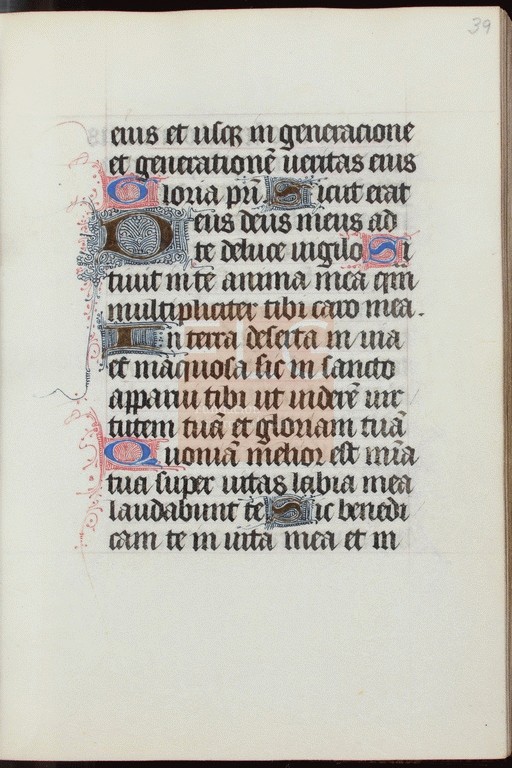 39
eius et usq̄ in generacione
et generationē ueritas eius
Gloria pr̄i Sicut erat
Deus deus meus ad
te de luce uigilo Si
tiuit in te anima mea qm̄
multipliciter tibi caro mea.
In terra deserta in uia
et inaquosa sic in sancto
apparui tibi ut uiderē uir
tutem tuā et gloriam tuā
Quoniā melior est mīa
tua super uitas labia mea
laudabunt te Sic benedi
cam te in uita mea et in